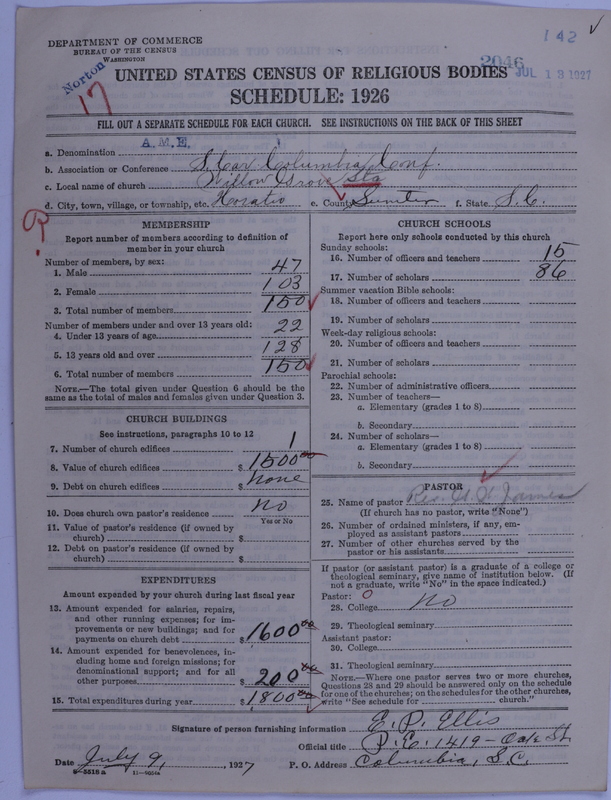 DEPARTMENT OF COMMERCE
BUREAU OF THE CENSUS
WASHINGTON
Norton
17
142
2046
JUL 13 1927
UNITED STATES CENSUS OF RELIGIOUS BODIES
SCHEDULE: 1926
FILL OUT A SEPARATE SCHEDULE FOR EACH CHURCH. SEE INSTRUCTIONS ON THE BACK OF THIS SHEET
a. Denomination A.M.E.
b. Association or Conference S. Car Columbia Conf.
c. Local name of church Willow Grove Sta
d. City, town, village, or township, etc. Horatio e. County Sumter f. State S.C.
MEMBERSHIP
Report number of members according to definition of
member in your church
Number of members, by sex:
1. Male 47
2. Female 103
3. Total number of members 150
Number of members under and over 13 years old:
4. Under 13 years of age 22
5. 13 years old and over 128
6. Total number of members 150
NOTE.—The total given under Question 6 should be
same as the total of males and females given under Question 3.
CHURCH BUILDINGS
See instructions, paragraphs 10 to 12
7. Number of church edifices 1
8. Value of church edifices $ 1500 00
9. Debt on church edifices $ none
10. Does church own pastor's residence? no
Yes or No
11. Value of pastor's residence (if owned by
church) $
12. Debt on pastor's residence (if owned by
church) $
EXPENDITURES
Amount expended by your church during last fiscal year
13. Amount expended for salaries, repairs,
and other running expenses; for im-
provements or new buildings; and for
payments on church debt $ 1600 00
14. Amount expended for benevolences, in-
cluding home and foreign missions; for
denominational support; and for all
other purposes $ 200 00
15. Total expenditures during year $ 1800 00
CHURCH SCHOOLS
Report here only schools conducted by this church
Sunday schools:
16. Number of officers and teachers 15
17. Number of scholars 86
Summer vacation Bible schools:
18. Number of officers and teachers
19. Number of scholars
Week-day religious schools:
20. Number of officers and teachers
21. Number of scholars
Parochial schools:
22. Number of administrative officers
23. Number of teachers—
a. Elementary (grades 1 to 8)
b. Secondary
24. Number of scholars—
a. Elementary (grades 1 to 8)
b. Secondary
PASTOR
25. Name of pastor Rev. James
(If church has no pastor, write "None")
26. Number of ordained ministers, if any, em-
ployed as assistant pastors
27. Number of other churches served by the
pastor or his assistants
If pastor (or assistant pastor) is a graduate of a college or
theological seminary, give name of institution below. (If
not a graduate, write "No" in the space indicated.)
Pastor: 0
28. College no
29. Theological seminary
Assistant pastor:
30. College
31. Theological seminary
NOTE.—Where one pastor serves two or more churches,
Questions 28 and 29 should be answered only on the schedule
for one of the churches; on the schedules for the other churches,
write "See schedule for church."
Signature of person furnishing information E. P. Ellis
Official title P. E. 1419 - Oak St
Date July 9, 1927 P. O. Address Columbia, S.C.
8-3518 a